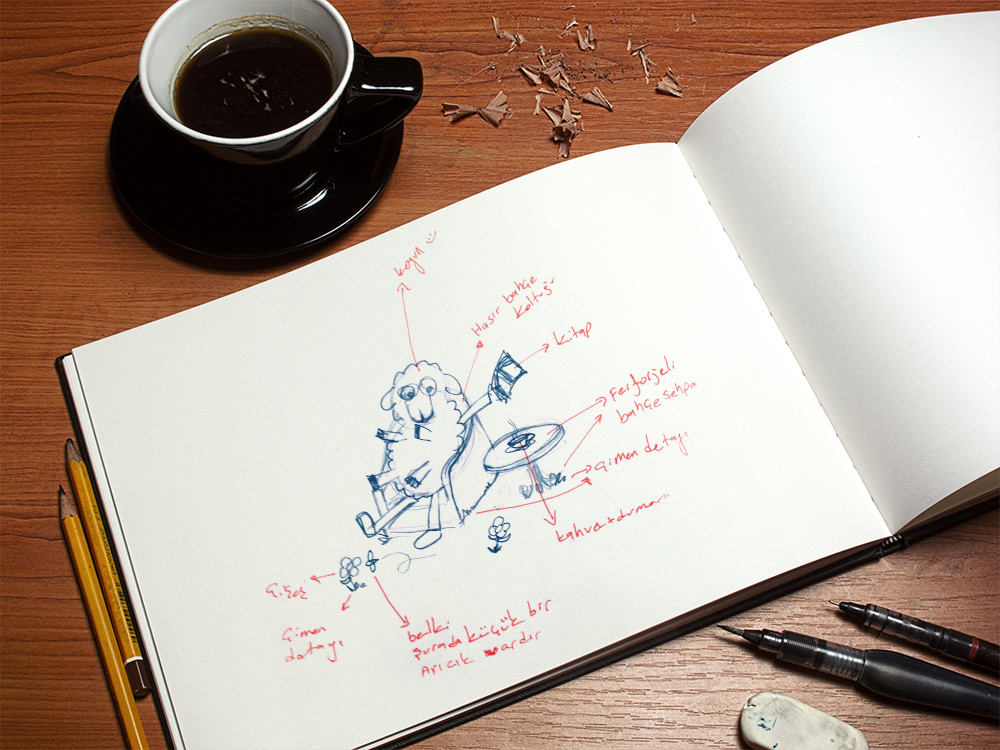 koyun
Hasır bahçe
koltuğu
kitap
Ferforjeli
bahçe sehpa
çimen detayı
kahve+dumanı
çiçek
çimen
detayı
belki
şurada küçük bir
arıcık vardır